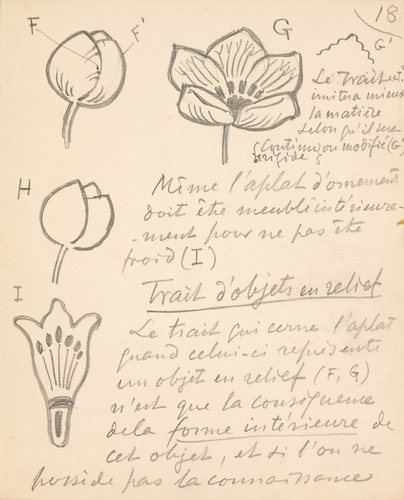 18
F
F'
G
G'
Le trait
imitera mieux
la matière
selon qu'il sera
Continu ou modifié (G')
rigide
H
Même l'aplat d'ornement
doit être meublé intérieure-
-ment pour ne pas être
froid (I)
I
Trait d'objets en relief
Le trait qui cerne l'aplat
quand celui-ci représente
un objet en relief (F, G)
n'est que la conséquence
de la forme intérieure de
cet objet, et si l'on ne
possède pas la connaissance